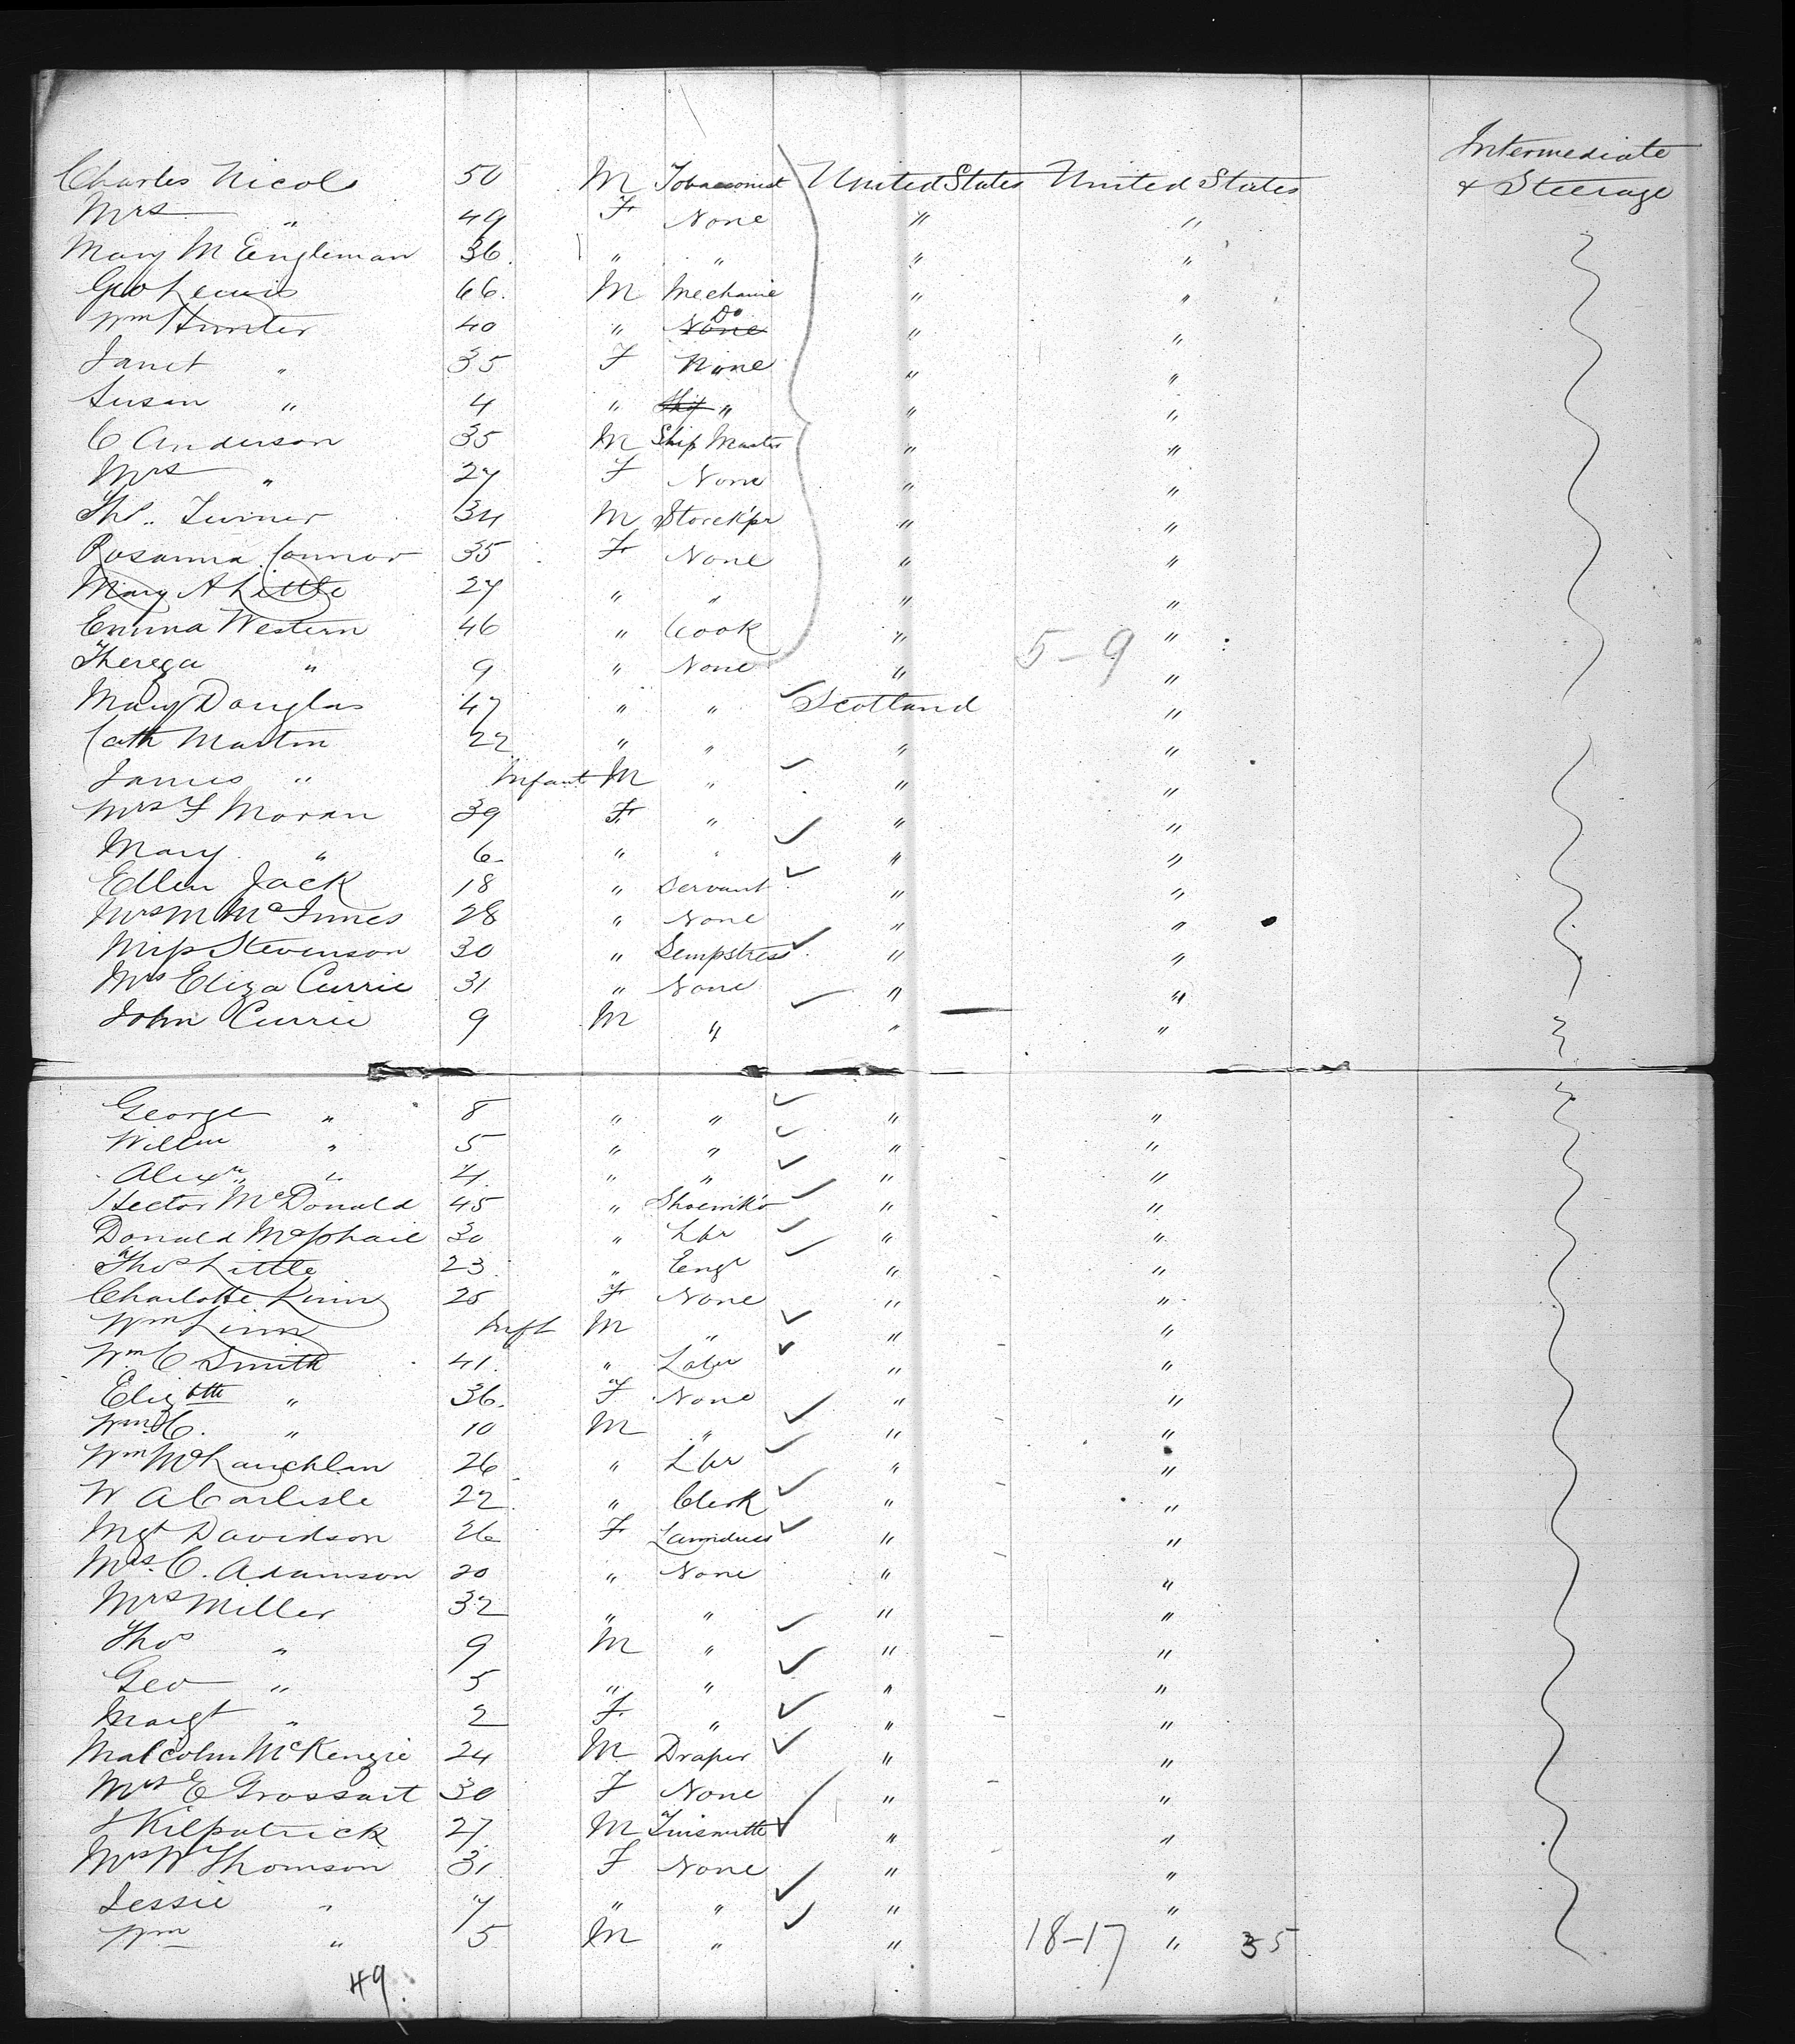 Intermediate
Charles Nicol 50 M Tobacconist United States United States & Steerage
Mrs " 49 F None " "
Mary M Engleman 36 " " " "
Geo Lewis 66 M Mechanic " "
Do
Wm Hunter 40 " None " "
Janet " 35 F None " "
Susan " 4 " Ship " " "
C Anderson 35 M Ship Master " "
Mrs " 27 F None " "
Ths Turner 34 M Storek'pr " "
Rosanna Connor 35 F None " "
Mary A Little 27 " " " "
Emma Western 46 " Cook " "
Thereza " 9 " None " 5-9 "
Mary Douglas 47 " " Scotland "
Cath Martin 22 " " " "
James " Infant M " " "
Mrs F Moran 39 F " " "
Mary " 6 " " " "
Ellen Jack 18 " Servant " "
Mrs M McInnes 28 " None " "
Miss Stevenson 30 " Sempstress " "
Mrs Eliza Currie 31 " None " "
John Currie 9 M " " "
George " 8 " " " "
Willm " 5 " " " "
Alexr " 4 " " " "
Hector McDonald 45 " Shoemk'r " "
Donald McPhail 30 " Lbr " "
Thos Little 23 " Engr " "
Charlotte Linn 25 F None " "
Wm Linn Inft M " " "
Wm C Smith 41 " Labr " "
Elizbth " 36 F None " "
Wm C. " 10 M " " "
Wm McLauchlan 26 " Lbr " "
W A Carlisle 22 " Clerk " "
Mgt Davidson 26 F Laundress " "
Mrs C. Adamson 20 " None " "
Mrs Miller 32 " " " "
Thos " 9 M " " "
Geo " 5 " " " "
Margt " 2 F " " "
Malcolm McKenzie 24 M Draper " "
Mrs E Grossart 30 F None " "
J Kilpatrick 27 M Tinsmith " "
Mrs W Thomson 31 F None " "
Jessie " 7 " " " "
Wm " 5 M " " 18-17 " 35
49